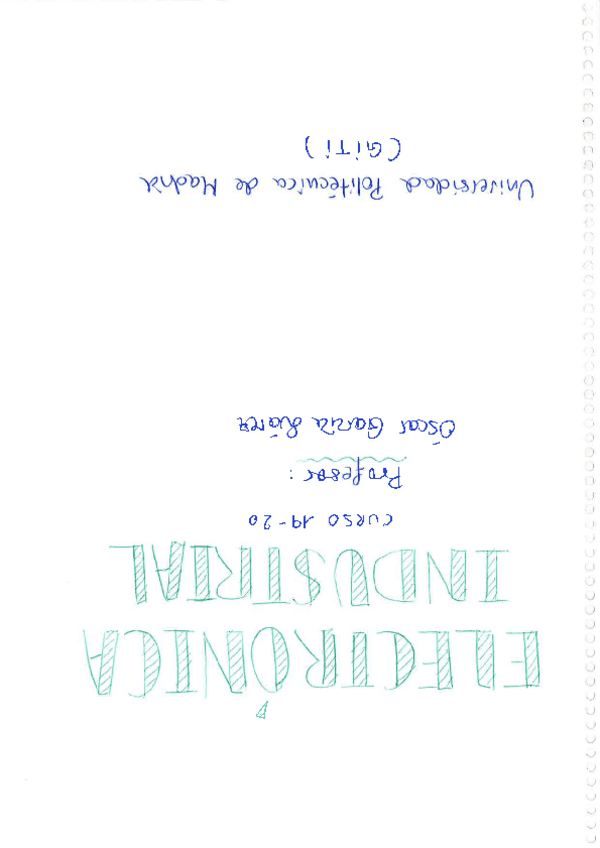 ELECTRÓNICA
INDUSTRIAL
CURSO 19-20
Profesor:
Óscar García Suárez
Universidad Politécnica de Madrid
(GiTi)